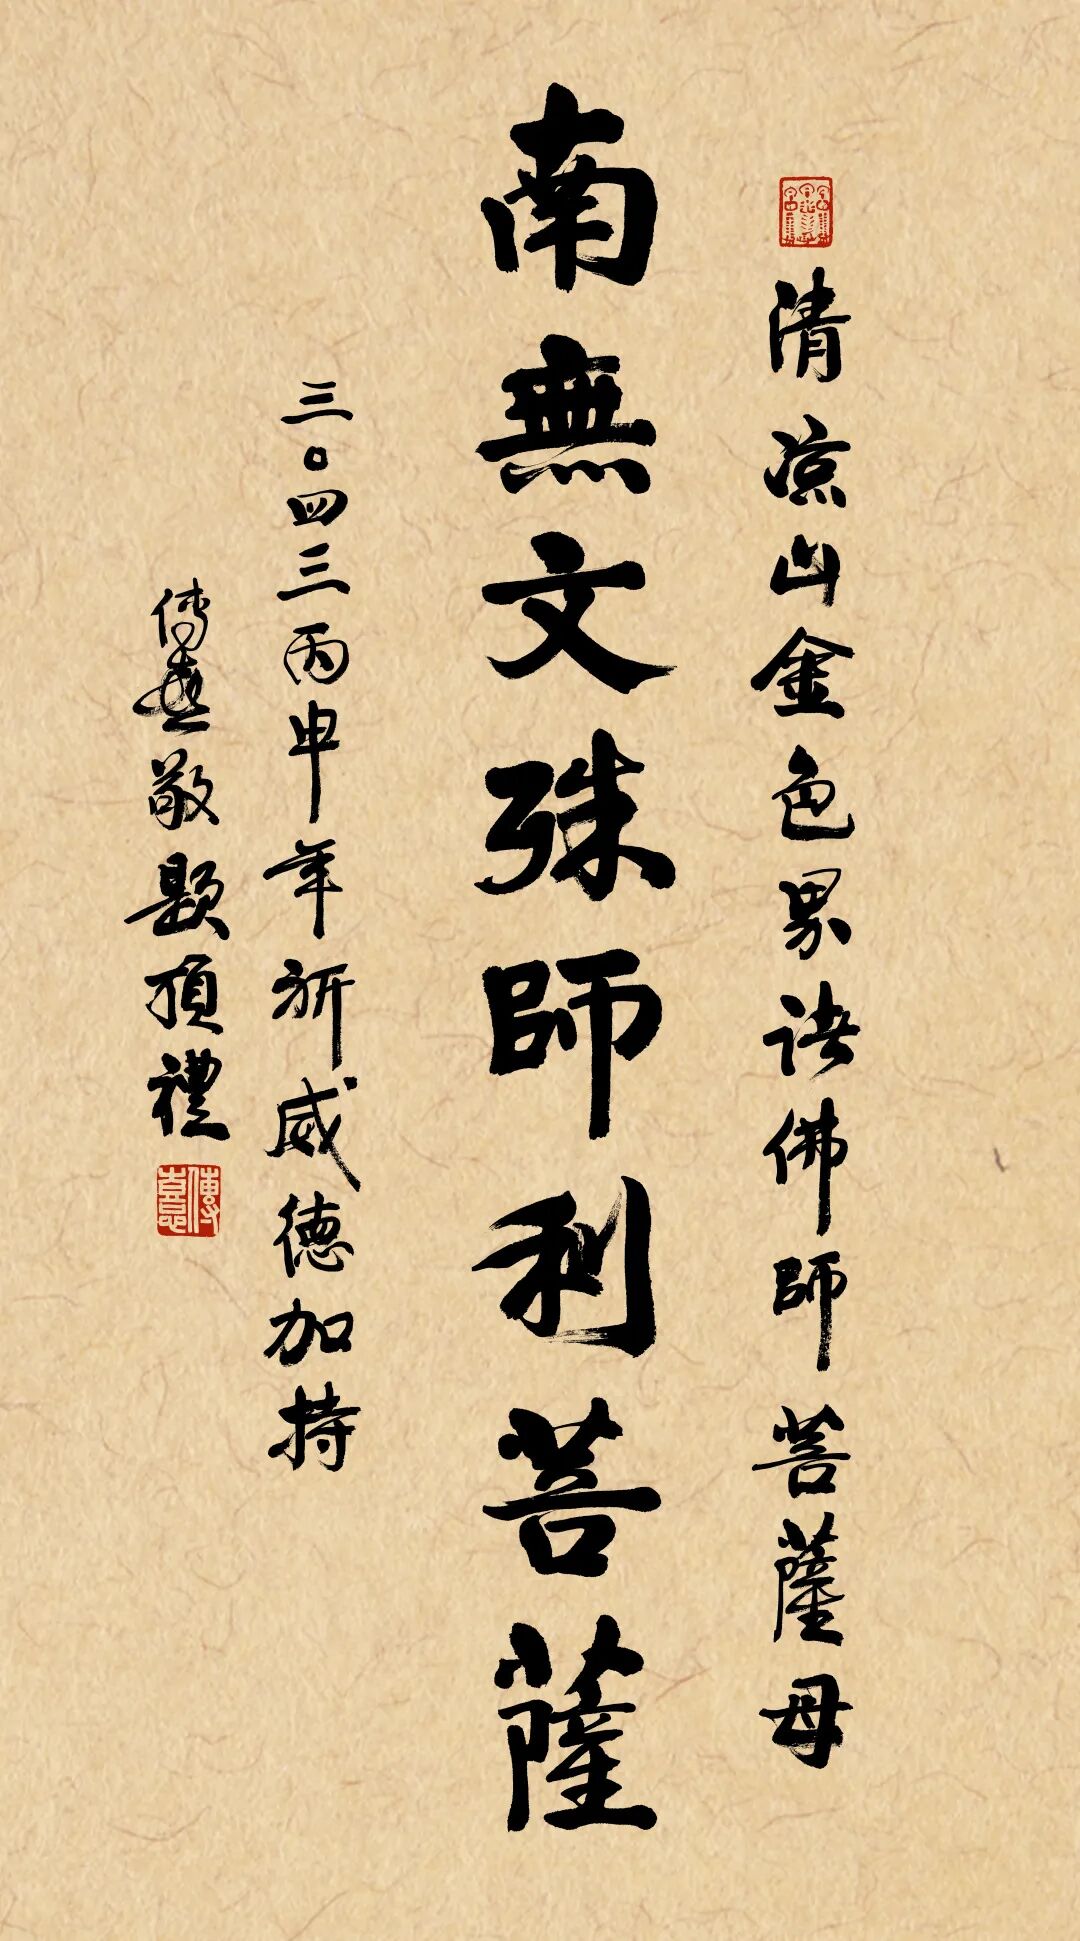 清凉山金色界諸佛師菩薩母
南無文殊師利菩薩
三〇四三丙申年祈威德加持
傳憙敬題頂禮
傳憙